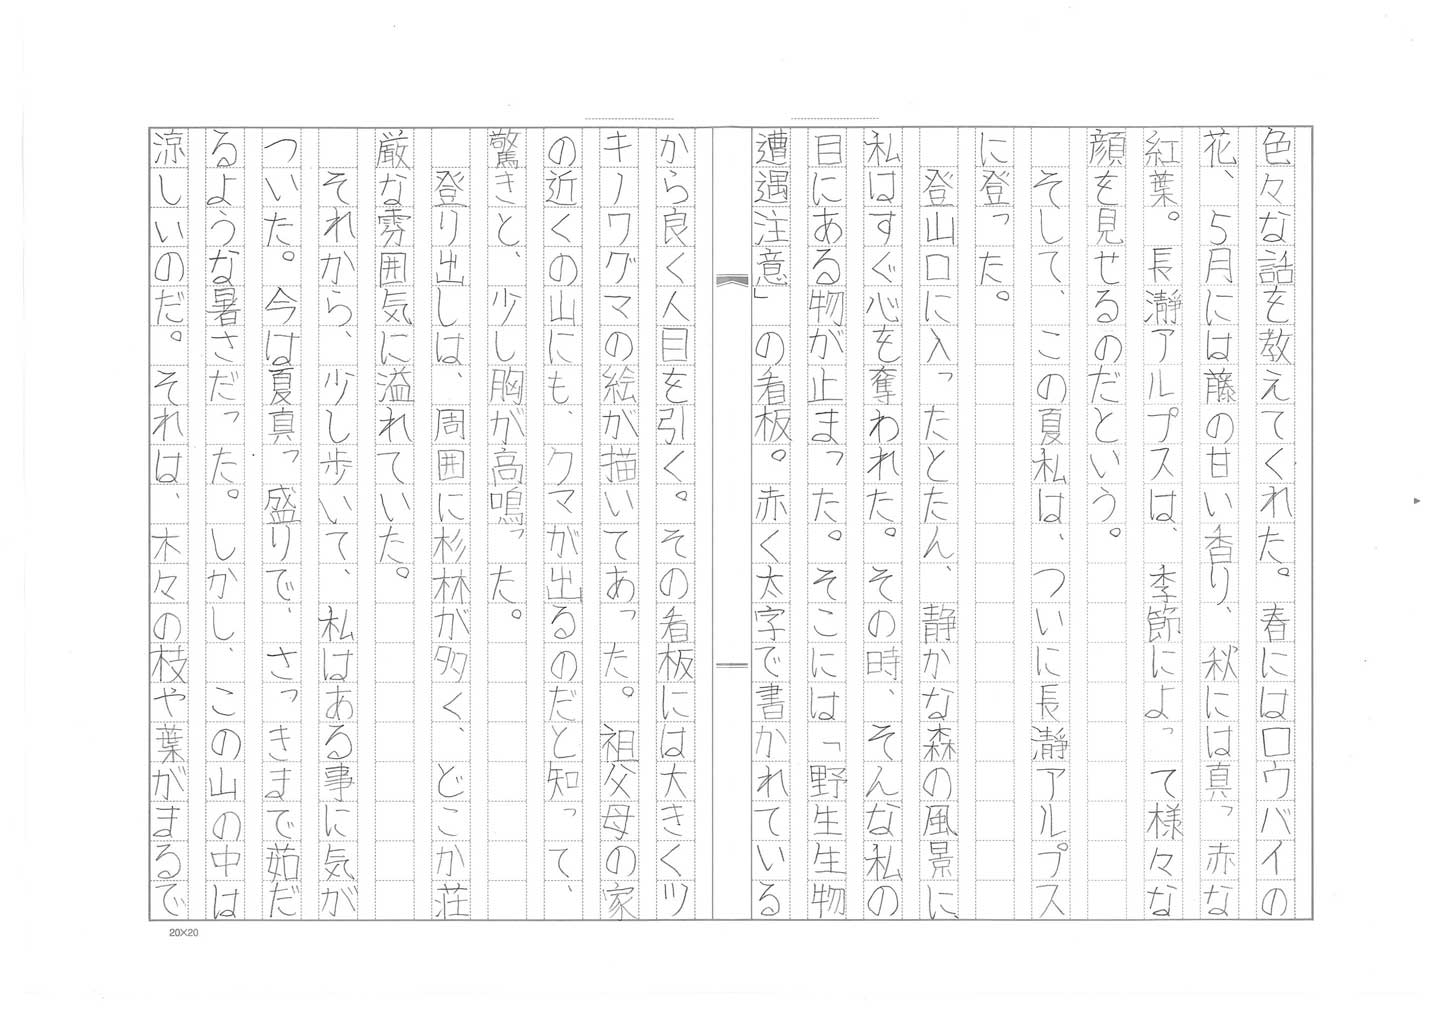 色々な話を教えてくれた。春にはロウバイの
花、5月には藤の甘い香り、秋には真っ赤な
紅葉。長瀞アルプスは、季節によって様々な
顔を見せるのだという。
そして、この夏私は、ついに長瀞アルプス
に登った。
登山口に入ったとたん、静かな森の風景に、
私はすぐ心を奪われた。その時、そんな私の
目にある物が止まった。そこには「野生生物
遭遇注意」の看板。赤く太字で書かれている
から良く人目を引く。その看板には大きくツ
キノワグマの絵が描いてあった。祖父母の家
の近くの山にも、クマが出るのだと知って、
驚きと、少し胸が高鳴った。
登り出しは、周囲に杉林が多く、どこか荘
厳な雰囲気に溢れていた。
それから、少し歩いて、私はある事に気が
ついた。今は夏真っ盛りで、さっきまで茹だ
るような暑さだった。しかし、この山の中は
涼しいのだ。それは、木々の枝や葉がまるで
20×20